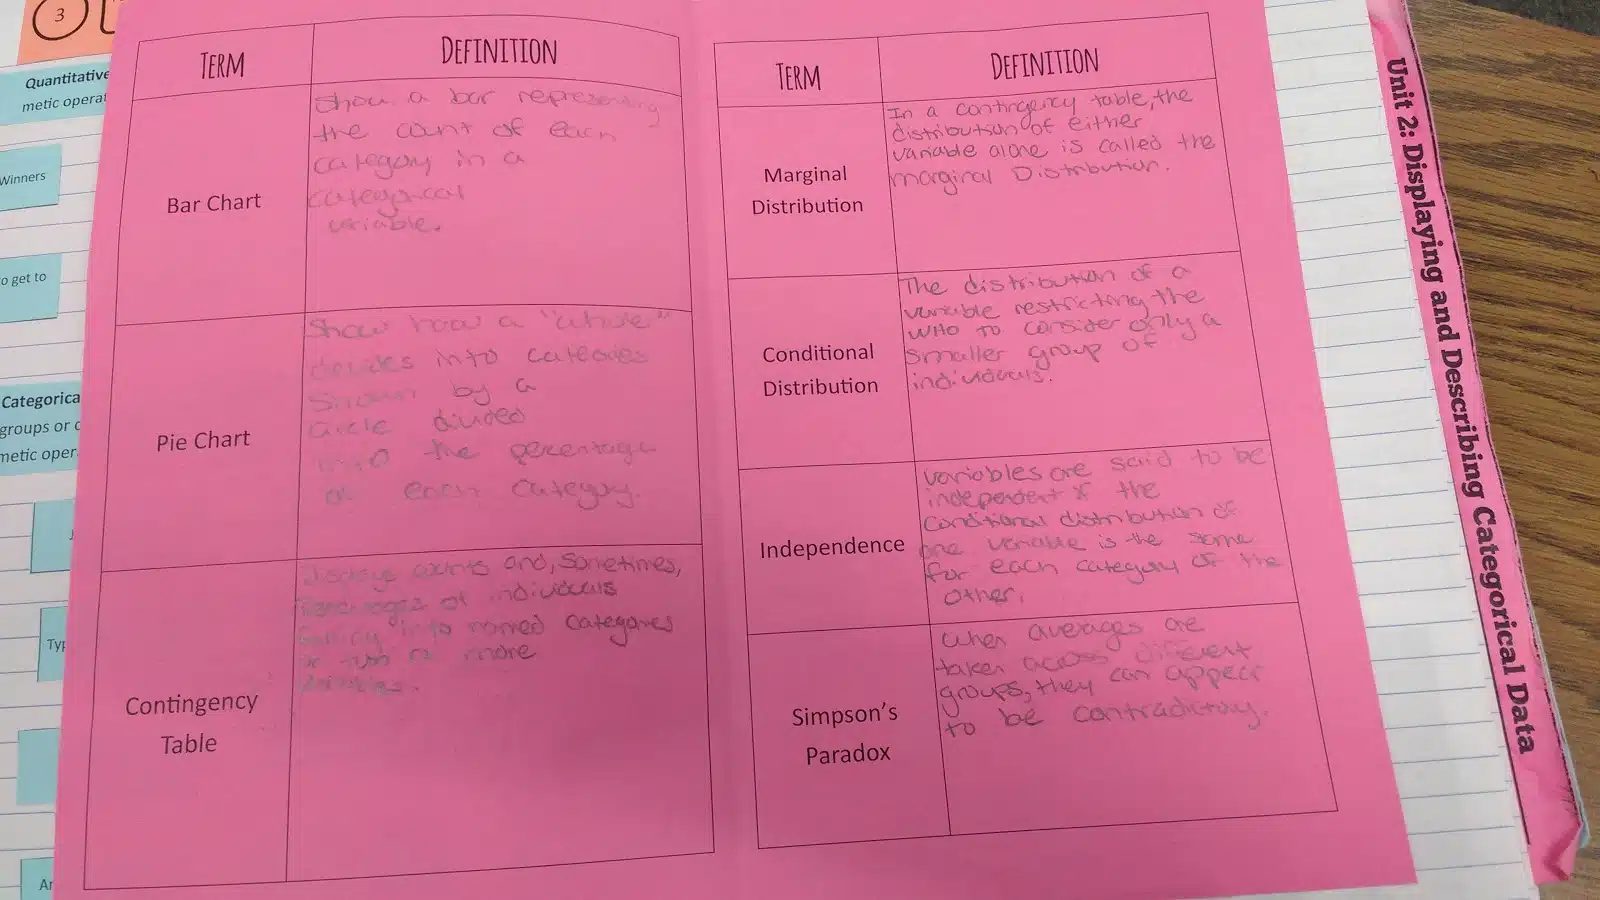 3
Quantitative
metic operat
Winners
o get to
Categorica
groups or c
metic oper
Typ
Ar
TERM
DEFINITION
Bar Chart
Show a bar representing
the count of each
category in a
categorical
variable.
Pie Chart
Show how a "whole"
divides into categories
Shown by a
circle divided
into the percentage
of each category.
Contingency
Table
Displays counts and, sometimes,
percentages of individuals
falling into named categories
on two or more
variables.
TERM
DEFINITION
Marginal
Distribution
In a contingency table, the
distribution of either
variable alone is called the
marginal Distribution.
Conditional
Distribution
The distribution of a
variable restricting the
WHO to consider only a
smaller group of
individuals.
Independence
variables are said to be
independent if the
conditional distribution of
one variable is the same
for each category of the
other.
Simpson's
Paradox
When averages are
taken across different
groups, they can appear
to be contradictory.
Unit 2: Displaying and Describing Categorical Data